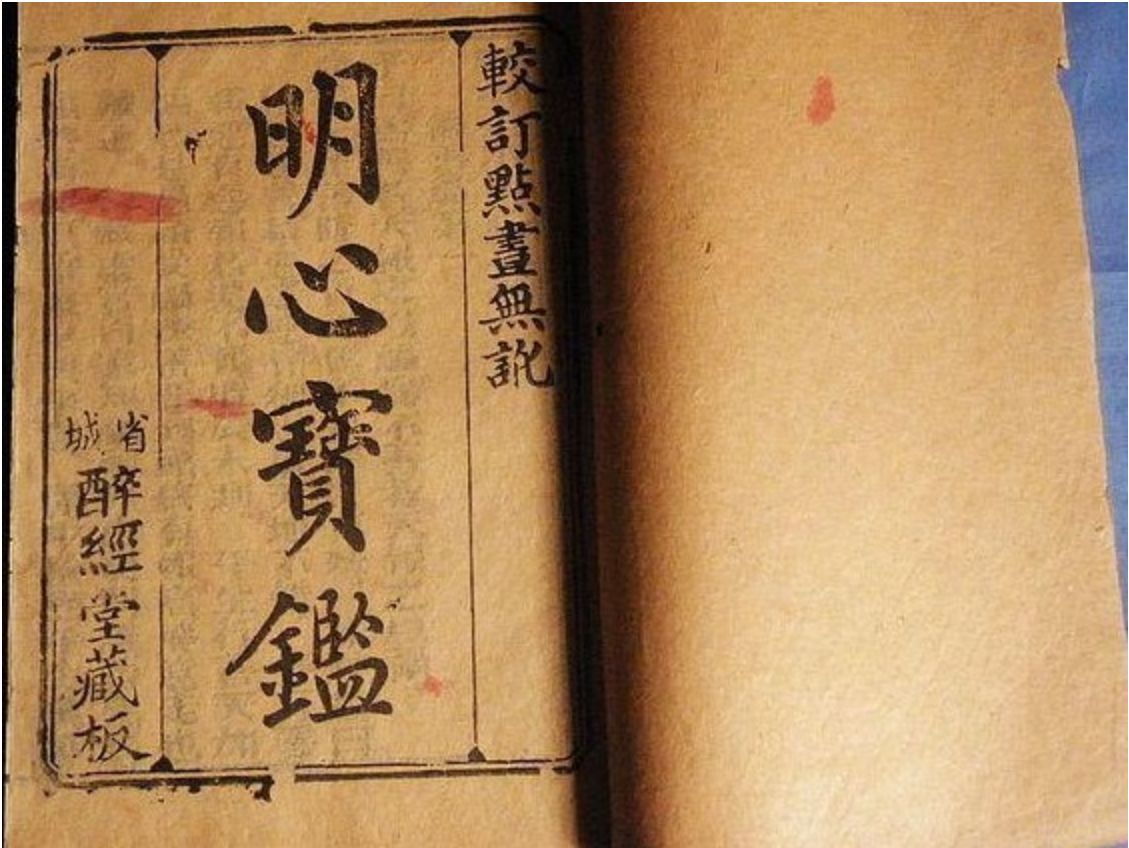 較訂點畫無訛
明心寶鑑
省城
醉經堂藏板